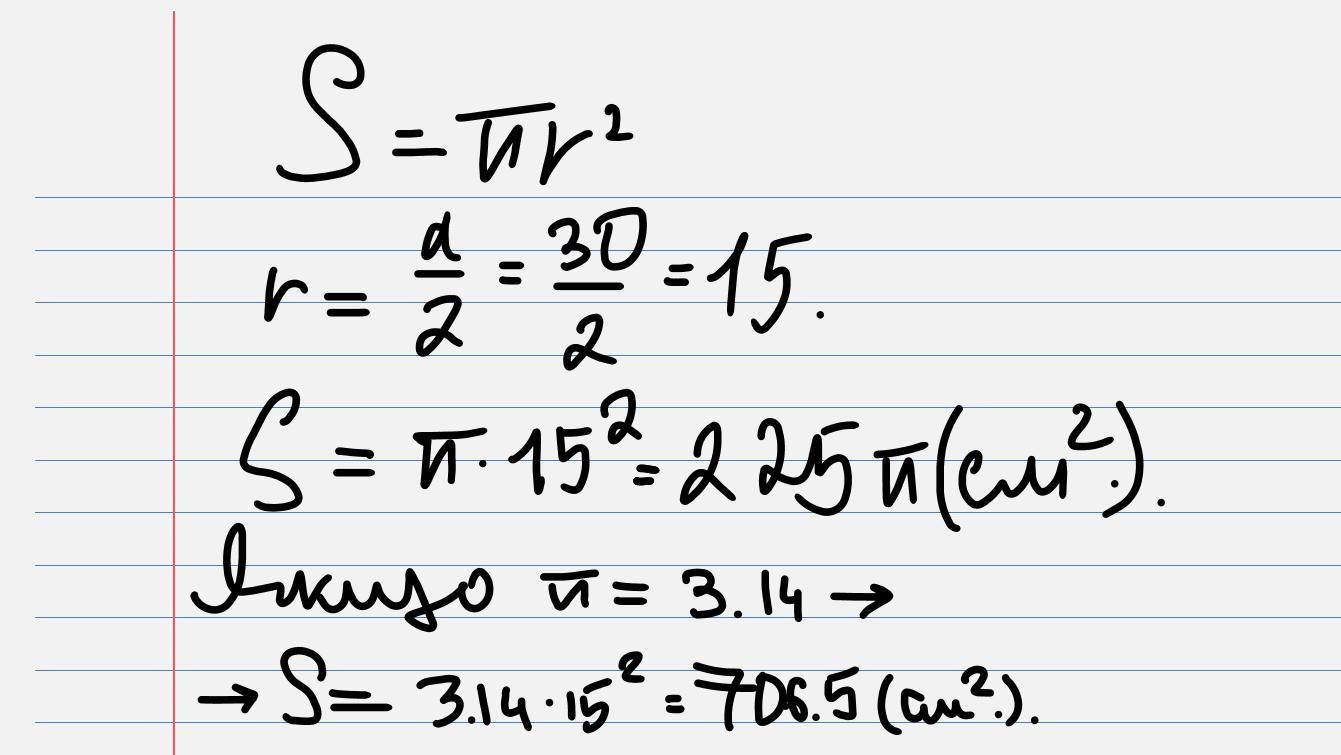 S = πr²
r = d/2 = 30/2 = 15.
S = π · 15² = 225π (см².).
Якщо π = 3.14 →
→ S = 3.14 · 15² = 706.5 (см².).